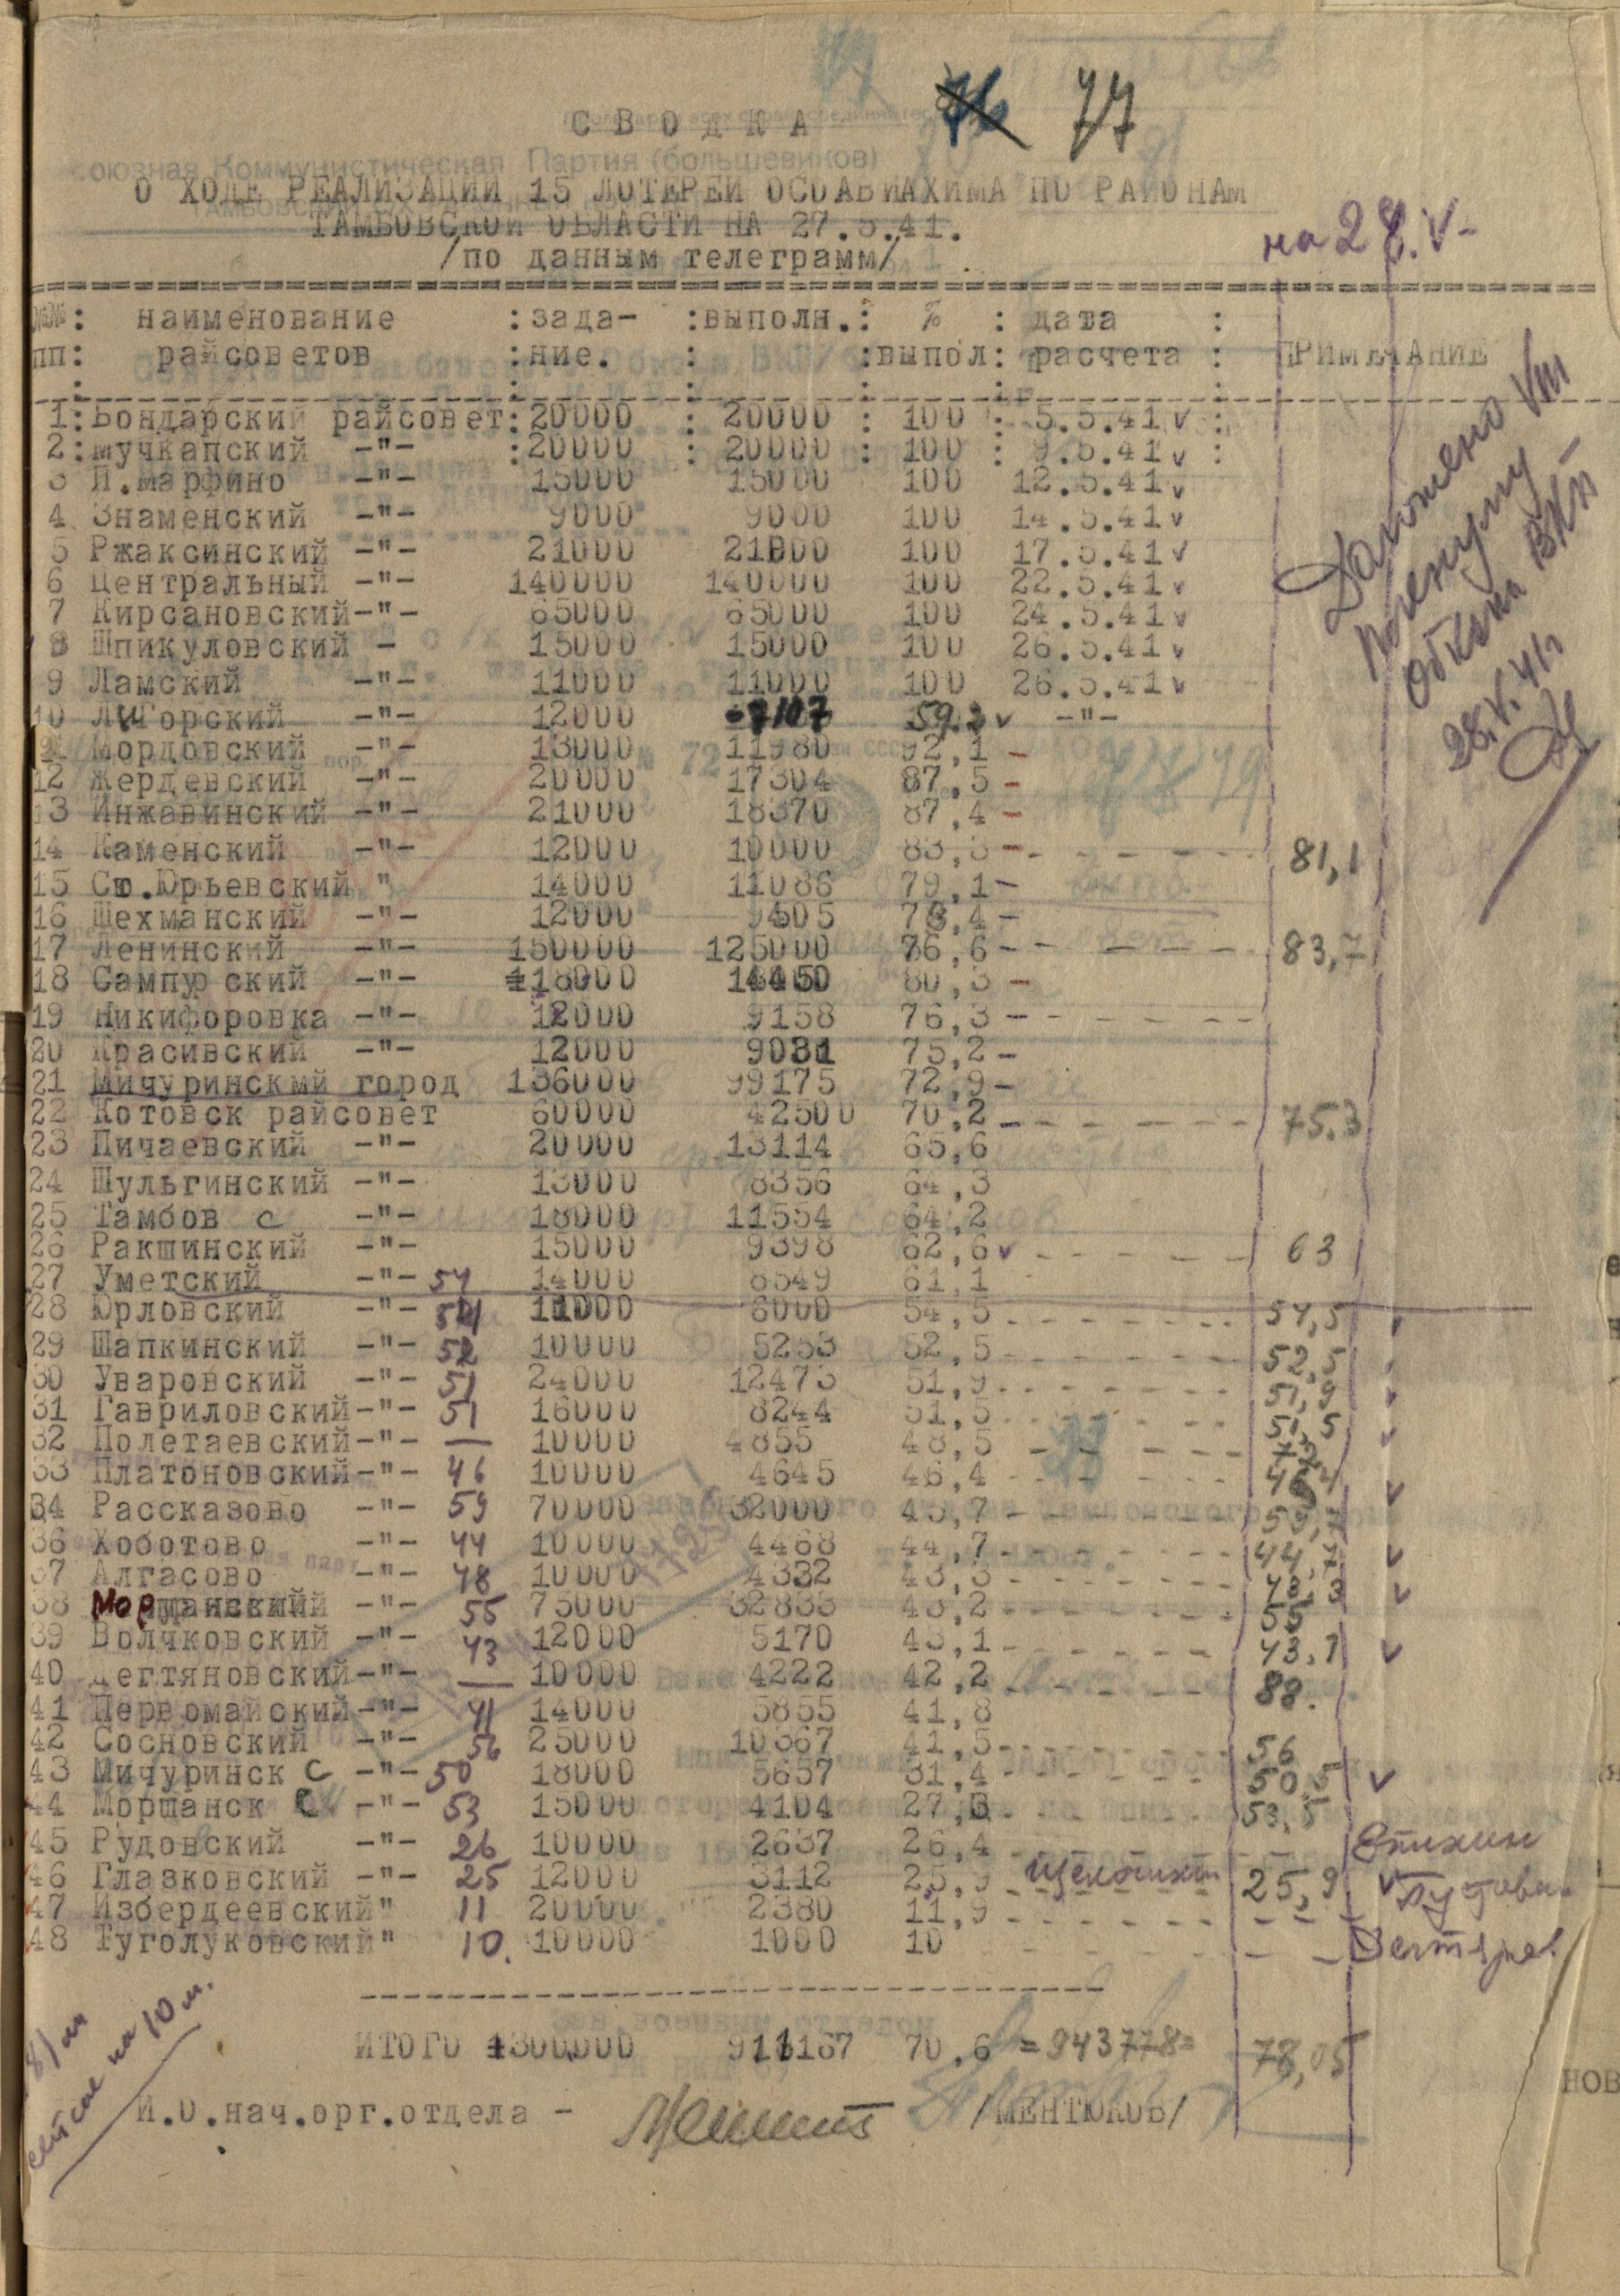 77
СВОДКА
О ХОДЕ РЕАЛИЗАЦИИ 15 ЛОТЕРЕИ ОСОАВИАХИМА ПО РАЙОНАМ
ТАМБОВСКОЙ ОБЛАСТИ НА 27.5.41.
/по данным телеграмм/
на 28.V-
№№: наименование :зада- :выполн.: % : дата :
пп: райсоветов :ние. : :выпол: расчета : ПРИМЕЧАНИЕ
1:Бондарский райсовет:20000 : 20000 : 100 : 5.5.41 v :
2:Мучкапский -"- :20000 : 20000 : 100 : 9.5.41 v :
3 П.Марфино -"- 15000 15000 100 12.5.41 v
4 Знаменский -"- 9000 9000 100 14.5.41 v
5 Ржаксинский -"- 21000 21000 100 17.5.41 v
6 Центральный -"- 140000 140000 100 22.5.41 v
7 Кирсановский-"- 65000 65000 100 24.5.41 v
8 Шпикуловский - 15000 15000 100 26.5.41 v
9 Ламский -"- 11000 11000 100 26.5.41 v
10 Л.Горский -"- 12000 7107 59.2 v -"-
11 Мордовский -"- 13000 11980 92,1 -
12 Жердевский -"- 20000 17304 87,5 -
13 Инжавинский -"- 21000 18370 87,4 -
14 Каменский -"- 12000 10000 83,3 - 81,1
15 Ст.Юрьевский " 14000 11086 79,1 -
16 Шехманский -"- 12000 9405 78,4 -
17 Ленинский -"- 150000 125000 76,6 - 83,7
18 Сампурский -"- 18000 14450 80,3 -
19 Никифоровка -"- 12000 9158 76,3 -
20 Красивский -"- 12000 9031 75,2 -
21 Мичуринский город 136000 99175 72,9 -
22 Котовск райсовет 60000 42500 70,2 - 75.3
23 Пичаевский -"- 20000 13114 65,6
24 Шульгинский -"- 13000 8356 64,3
25 Тамбов с -"- 18000 11554 64,2
26 Ракшинский -"- 15000 9398 62,6 v 63
27 Уметский -"- 14000 8549 61,1
28 Юрловский -"- 54 11000 6000 54,5 54,5 v
29 Шапкинский -"- 52 10000 5253 52,5 52,5
30 Уваровский -"- 51 24000 12473 51,9 51,9 v
31 Гавриловский-"- 51 16000 8244 51,5 51,5 v
32 Полетаевский-"- — 10000 4855 48,5
33 Платоновский-"- 46 10000 4645 46,4 46,4 v
34 Рассказово -"- 59 70000 32000 45,7 59,7
36 Хоботово -"- 44 10000 4468 44,7 44,7 v
37 Алгасово -"- 48 10000 4332 43,3 43,3 v
38 Моршанский 55 75000 32833 43,2 55
39 Волчковский -"- 43 12000 5170 43,1 43,1 v
40 Дегтяновский-"- — 10000 4222 42,2 88.
41 Первомайский-"- 41 14000 5855 41,8
42 Сосновский -"- 56 25000 10367 41,5 56
43 Мичуринск с -"- 50 18000 5657 31,4 50,5 v
44 Моршанск с -"- 53 15000 4104 27,3 53,5
45 Рудовский -"- 26 10000 2637 26,4
46 Глазковский -"- 25 12000 3112 25,9 25,9 v
47 Избердеевский" 11 20000 2380 11,9
48 Туголуковский" 10. 10000 1000 10
Доложено VIII
пленуму
обкома ВКП
28.V.41г
ИТОГО 1300.000 911167 70,6 =943778= 78,05
И.О.нач.орг.отдела - /МЕНТЮКОВ/